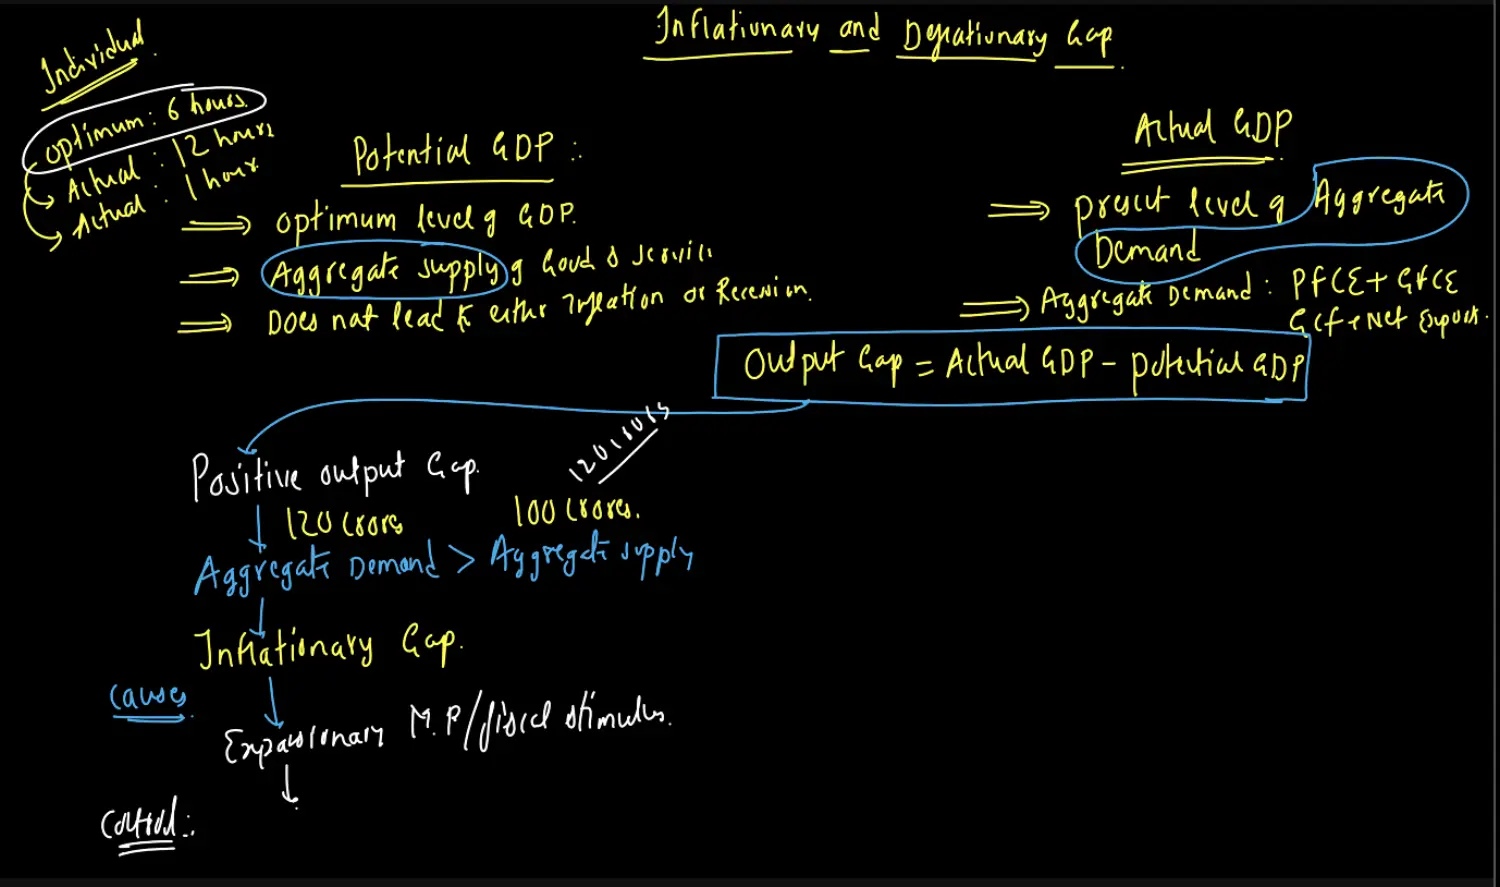 Inflationary and Deflationary Gap
Individual
optimum: 6 hours
Actual : 12 hours
Actual : 1 hour
Potential GDP :
optimum level of GDP.
Aggregate supply of Good & service
Does not lead to either Inflation or Recession.
Actual GDP
present level of Aggregate
Demand
Aggregate Demand : PFCE + GFCE
GCF + Net Export.
Output Gap = Actual GDP - potential GDP
Positive output Gap.
120 crores
120 crores
100 crores.
Aggregate Demand > Aggregate supply
Inflationary Gap.
Causes
Expansionary M.P/fiscal stimulus.
Control :